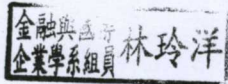 金融與國際
企業學系組員林玲洋